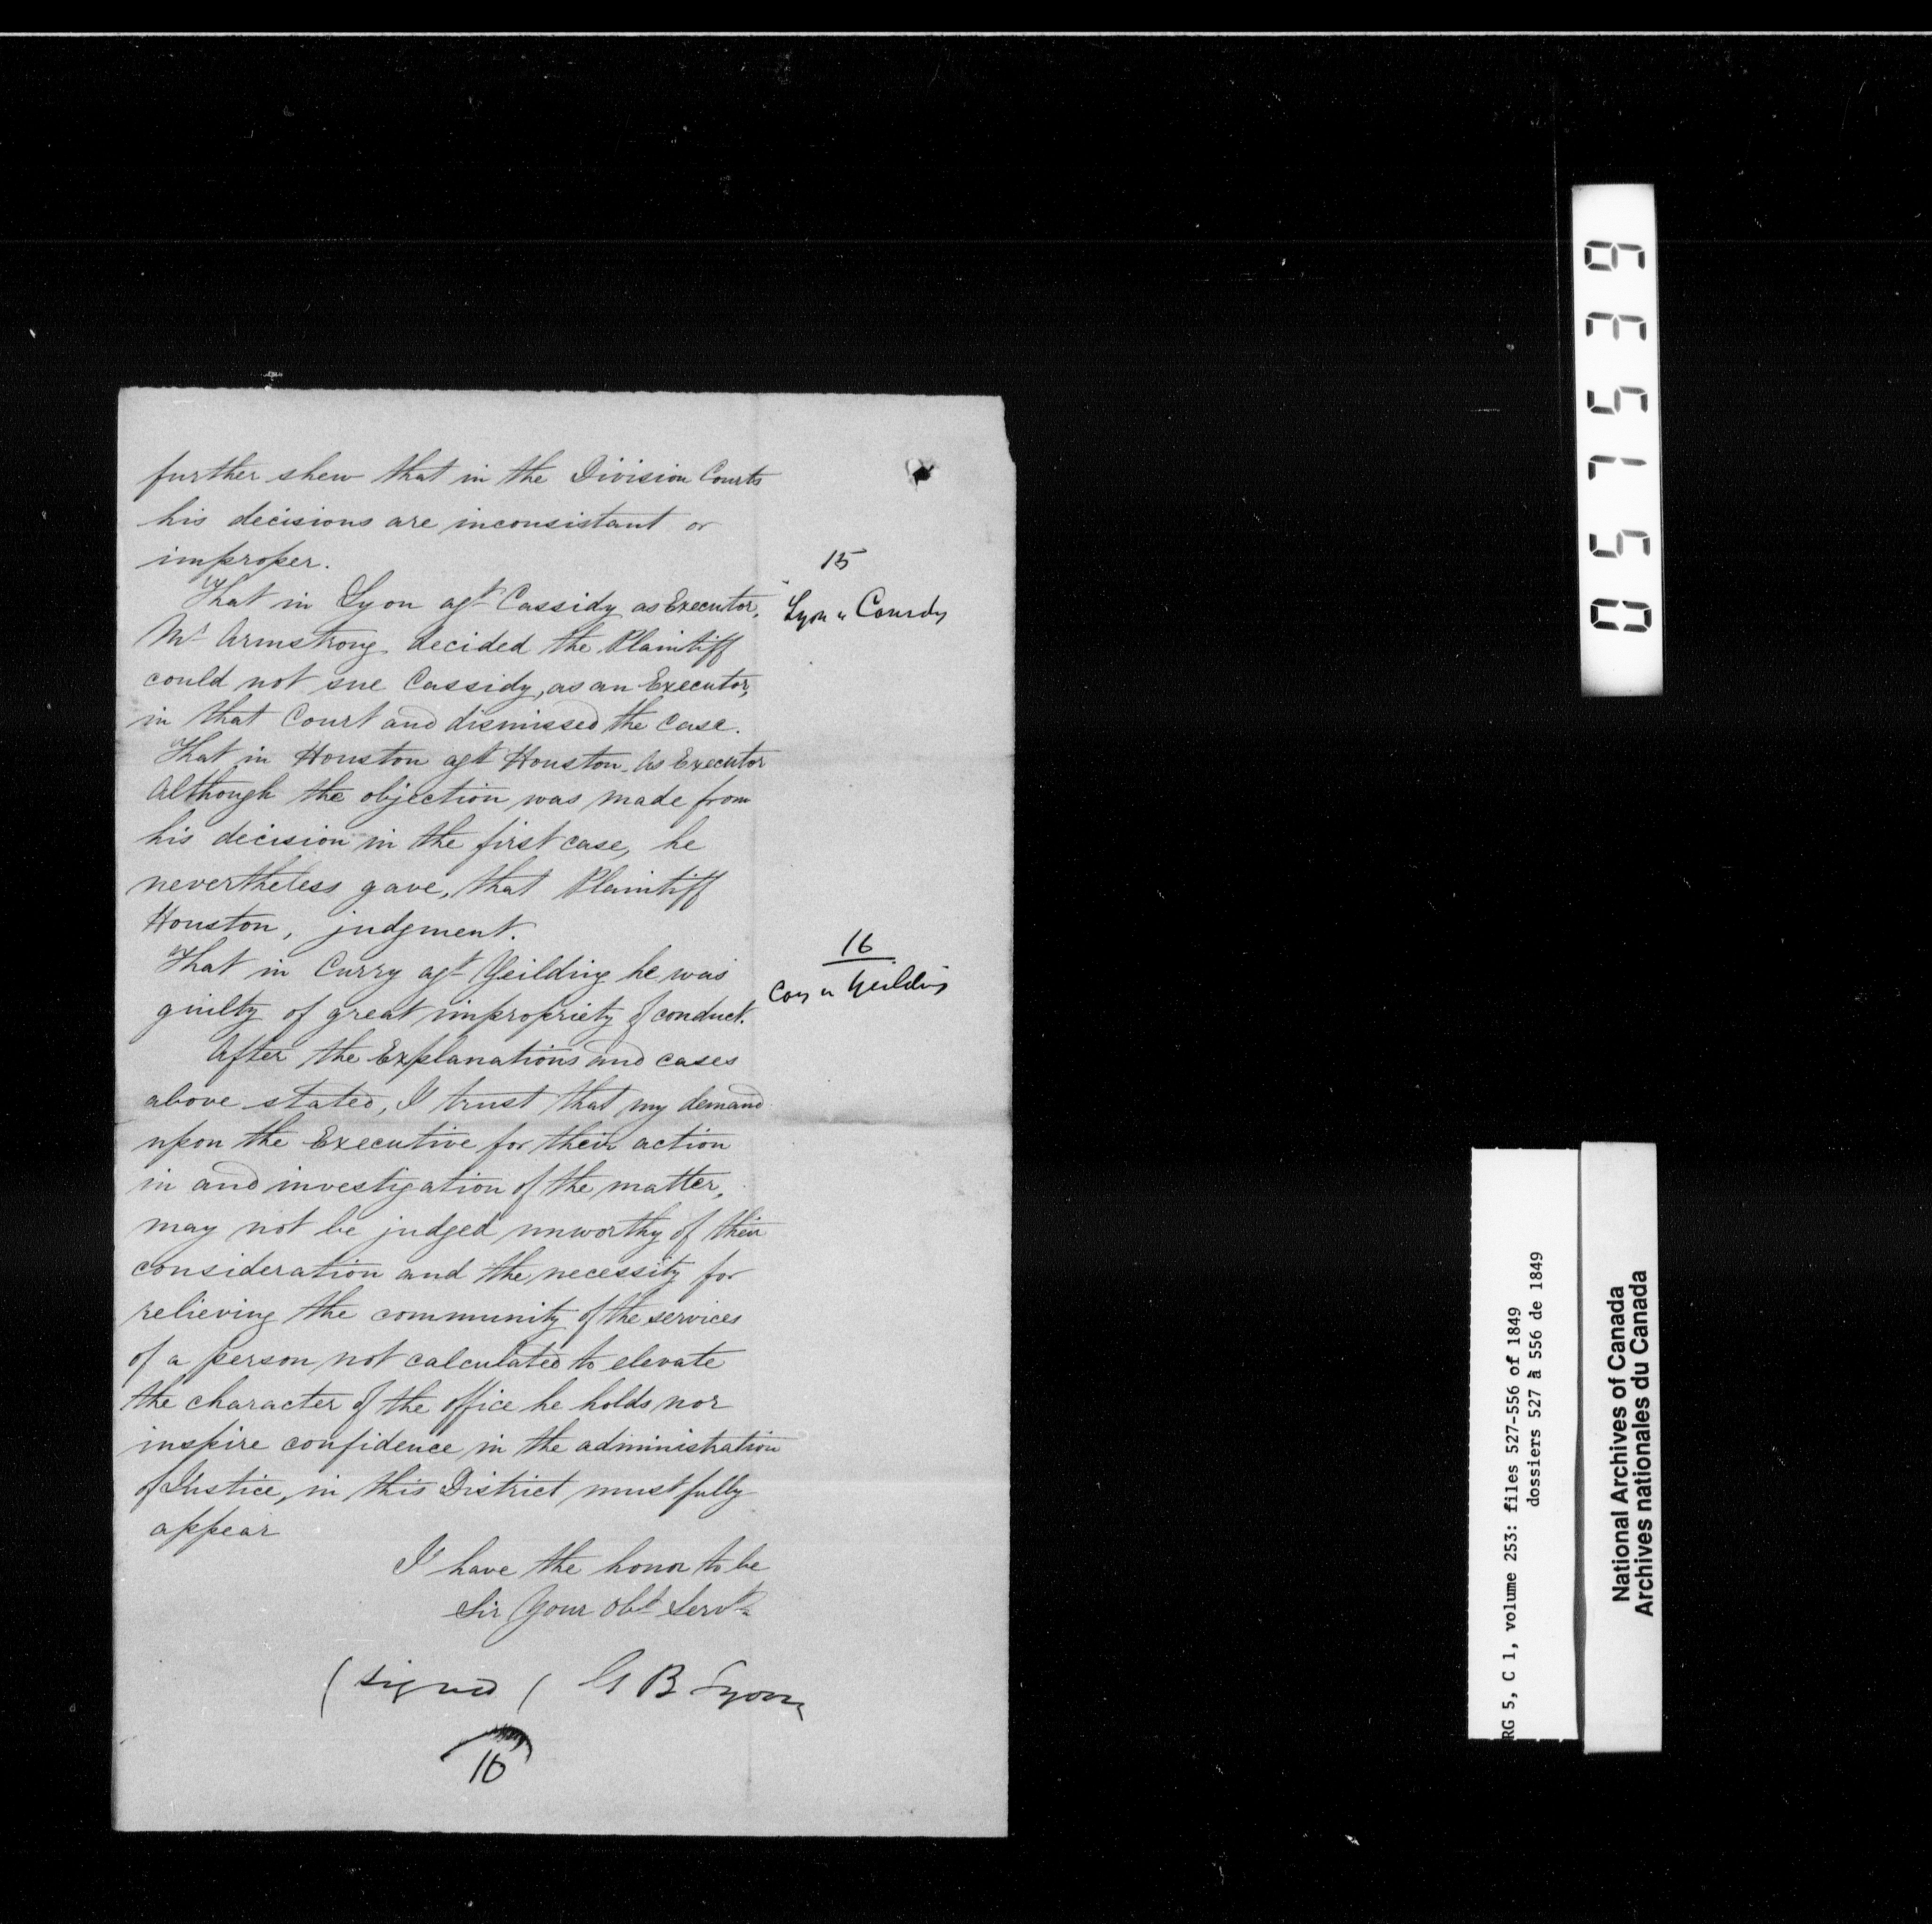 further shew that in the Division Courts
his decisions are inconsistant or
improper.
15
That in Lyon agt Cassidy as Executor,
Lyon
Mr Armstrong decided the Plaintiff
could not sue Cassidy, as an Executor,
in that Court and dismissed the Case.
That in Houston agt Houston. As Executor
Although the objection was made from
his decision in the first case, he
nevertheless gave, that Plaintiff
Houston, judgment.
16
That in Curry agt Yeilding he was
Yeilding
guilty of great impropriety of conduct.
After the Explanations and cases
above stated, I trust that my demand
upon the Executive for their action
in and investigation of the matter,
may not be judged unworthy of their
consideration and the necessity for
relieving the community of the services
of a person not calculated to elevate
the character of the office he holds nor
inspire confidence in the administration
of Justice, in this District must fully
appear
I have the honor to be
Sir Your Obt Servt
(signed ( G B Lyon
16
051539
RG 5, C 1, volume 253: files 527-556 of 1849
dossiers 527 à 556 de 1849
National Archives of Canada
Archives nationales du Canada